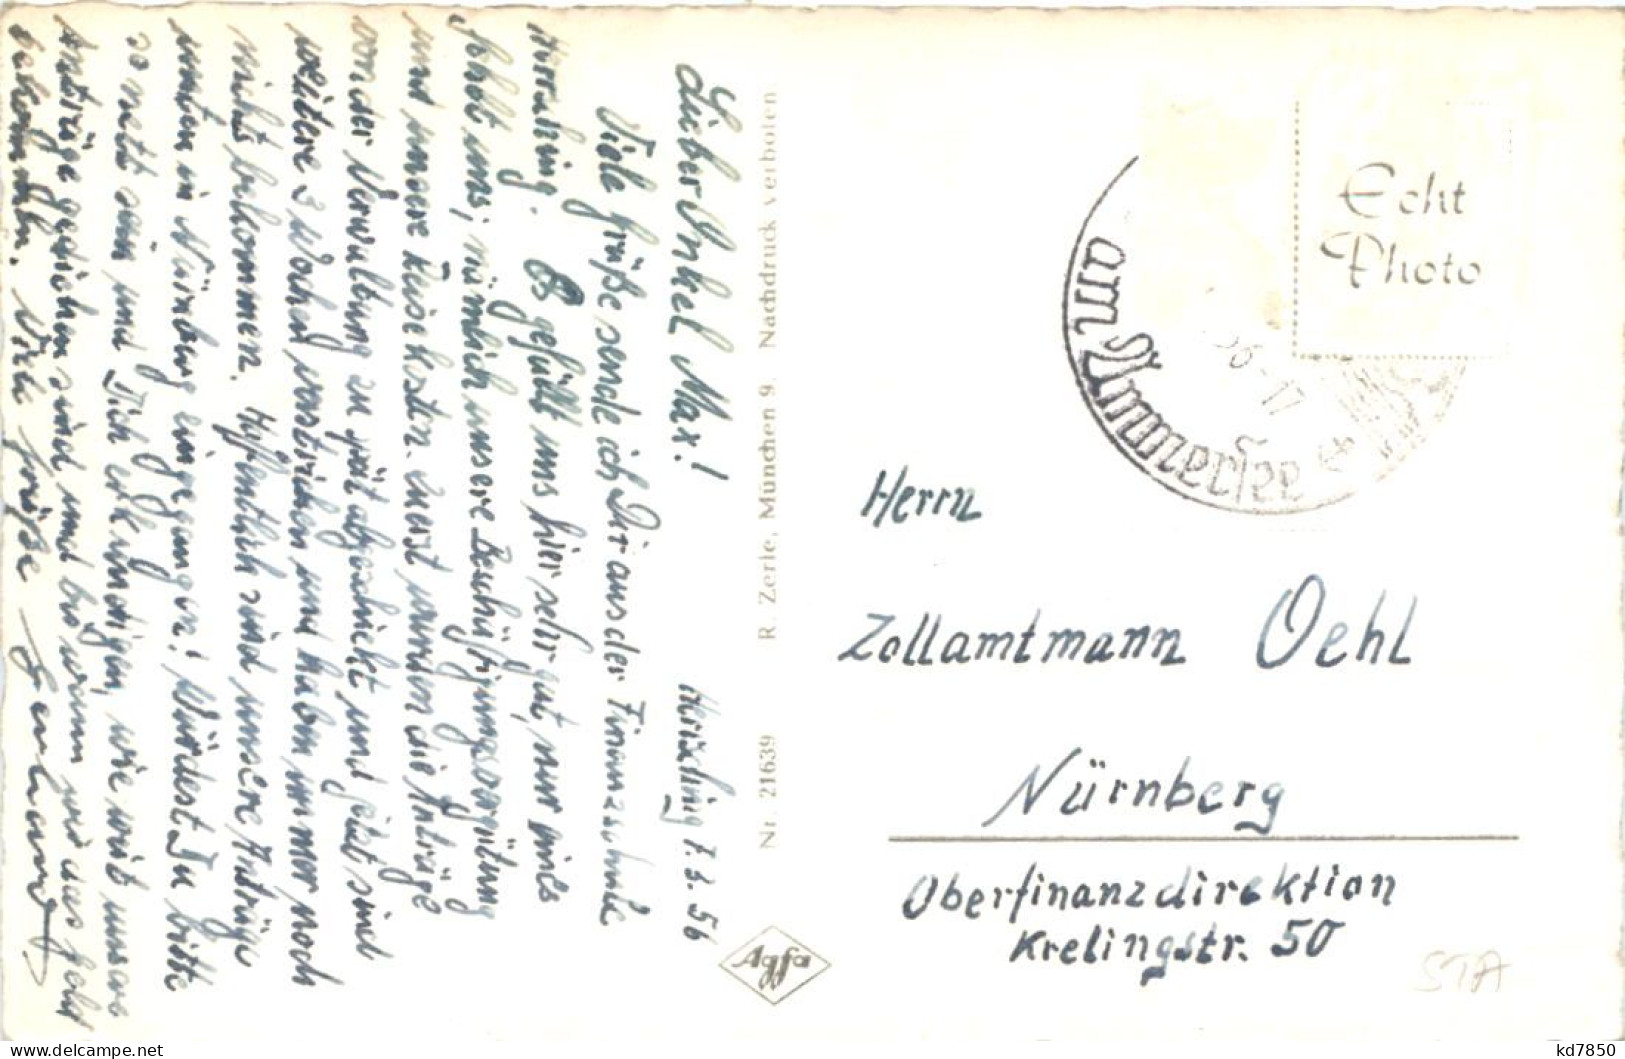 Herrsching 7.3.56
Lieber Onkel Max!
Viele Grüße sende ich Dir aus der Finanzschule
Herrsching. Es gefällt uns hier sehr gut, nur eines
fehlt uns, nämlich unsere Beschäftigungsvergütung
und unsere Reisekosten. Zuerst wurden die Anträge
von der Verwaltung zu spät abgeschickt und jetzt sind
weitere 3 Wochen verstrichen und haben immer noch
nichts bekommen. Hoffentlich sind unsere Anträge
unten in Nürnberg eingegangen! Würdest Du bitte
so nett sein und Dich erkundigen, wie weit unsere
Anträge gediehen sind und bis wann wir das Geld
bekommen. Viele Grüße Gerhard
R. Zerle, München 9. Nachdruck verboten
Nr. 21639
Agfa
Echt
Photo
am Ammersee
56-17
Herrn
Zollamtmann Oehl
Nürnberg
Oberfinanzdirektion
Krelingstr. 50
STA
kd7850